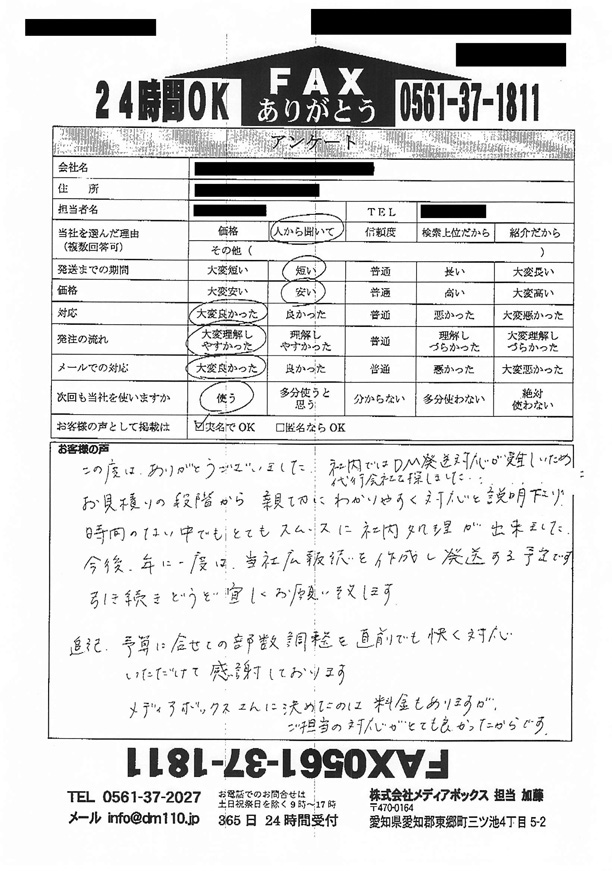 FAX
24時間OK ありがとう 0561-37-1811
アンケート
会社名
住 所
担当者名 TEL
当社を選んだ理由（複数回答可） 価格 人から聞いて 信頼度 検索上位だから 紹介だから
その他（ ）
発送までの期間 大変短い 短い 普通 長い 大変長い
価格 大変安い 安い 普通 高い 大変高い
対応 大変良かった 良かった 普通 悪かった 大変悪かった
発注の流れ 大変理解しやすかった 理解しやすかった 普通 理解しづらかった 大変理解しづらかった
メールでの対応 大変良かった 良かった 普通 悪かった 大変悪かった
次回も当社を使いますか 使う 多分使うと思う 分からない 多分使わない 絶対使わない
お客様の声として掲載は ☑実名でOK □匿名ならOK
お客様の声
この度は、ありがとうございました. 社内ではDM発送対応が難しいため
代行会社を探しました.
お見積りの段階から 親切にわかりやすく対応と説明下さり
時間のない中でもとてもスムースに社内処理が出来ました.
今後、年に一度は、当社広報誌を作成し発送する予定です
引き続きどうぞ宜しくお願い致します
追記. 予算に合せての部数調整を直前でも快く対応
いただけて感謝しております
メディアボックスさんに決めたのは 料金もありますが、
ご担当の対応がとても良かったからです.
FAX0561-37-1811
TEL 0561-37-2027 お電話でのお問合せは 株式会社メディアボックス 担当 加藤
土日祝祭日を除く9時～17時 〒470-0164
メール info@dm110.jp 365日 24時間受付 愛知県愛知郡東郷町三ツ池4丁目5-2